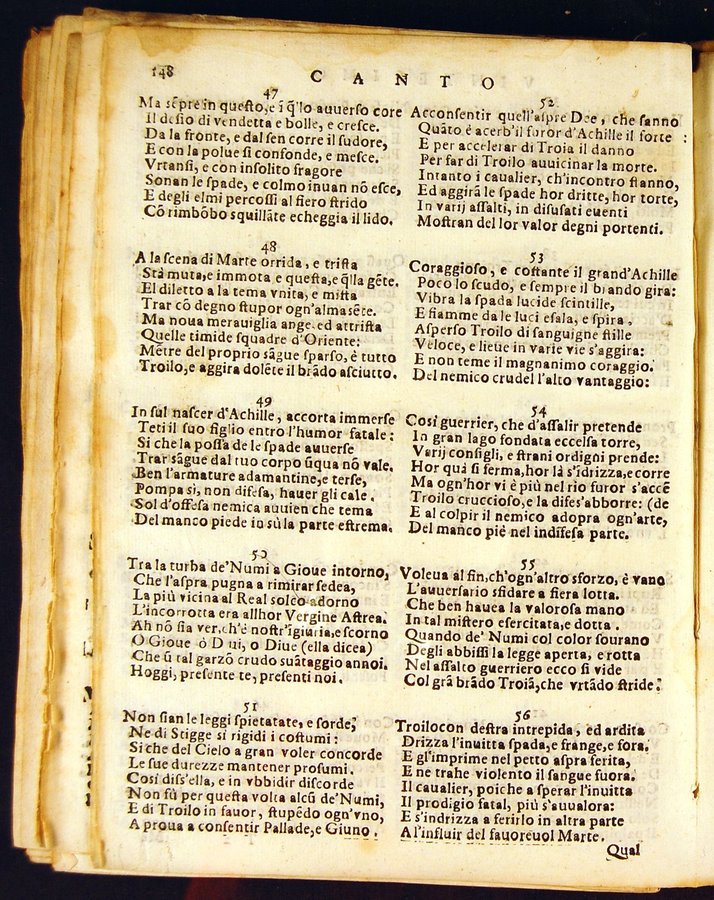 148
CANTO
47
Ma sẽpre in questo, e ĩ q̃llo auuerso core
Il desio di vendetta e bolle, e cresce.
Da la fronte, e dal sen corre il sudore,
E con la polue si confonde, e mesce.
Vrtansi, e con insolito fragore
Sonan le spade, e colmo inuan nõ esce,
E degli elmi percossi al fiero strido
Cõ rimbõbo squillãte echeggia il lido.
48
A la scena di Marte orrida, e trista
Stà muta, e immota e questa, e q̃lla gẽte.
El diletto a la tema vnita, e mista
Trar cõ degno stupor ogn'alma sẽte.
Ma noua merauiglia ange ed attrista
Quelle timide squadre d'Oriente:
Mẽtre del proprio sãgue sparso, è tutto
Troilo, e aggira dolẽte il brãdo asciutto.
49
In sul nascer d'Achille, accorta immerse
Teti il suo figlio entro l'humor fatale:
Si che la possa de le spade auuerse
Trar sãgue dal tuo corpo ũqua nõ vale.
Ben l'armature adamantine, e terse,
Pompa si, non difesa, hauer gli cale.
Sol d'offesa nemica auuien che tema
Del manco piede in sù la parte estrema.
50
Tra la turba de' Numi a Gioue intorno,
Che l'aspra pugna a rimirar sedea,
La più vicina al Real soleo adorno
L'incorrotta era allhor Vergine Astrea.
Ah nõ sia ver, ch'è nostr'ĩgiuria, e scorno
O Gioue ò Diui, o Diue (ella dicea)
Che si tal garzõ crudo suãtaggio annoi.
Hoggi, presente te, presenti noi.
51
Non sian le leggi spietatate, e sorde,
Ne di Stigge si rigidi i costumi:
Si che del Cielo a gran voler concorde
Le sue durezze mantener prosumi.
Cosi diss'ella, e in vbbidir discorde
Non fù per questa volta alcũ de' Numi,
E di Troilo in fauor, stupẽdo ogn'vno,
A proua a consentir Pallade, e Giuno.
52
Acconsentir quell'aspre Dee, che sanno
Quãto è acerb'il furor d'Achille il forte:
E per accelerar di Troia il danno
Per far di Troilo auuicinar la morte.
Intanto i caualier, ch'incontro stanno,
Ed aggirã le spade hor dritte, hor torte,
In varij assalti, in disusati euenti
Mostran del lor valor degni portenti.
53
Coraggioso, e costante il grand'Achille
Poco lo scudo, e sempre il brando gira:
Vibra la spada lucide scintille,
E fiamme da le luci esala, e spira,
Asperso Troilo di sanguigne stille
Veloce, e lieue in varie vie s'aggira:
E non teme il magnanimo coraggio
Del nemico crudel l'alto vantaggio:
54
Cosi guerrier, che d'assalir pretende
In gran lago fondata eccelsa torre,
Varij consigli, e strani ordigni prende:
Hor quà si ferma, hor là s'idrizza, e corre
Ma ogn'hor vi è più nel rio furor s'accẽ
Troilo cruccioso, e la difes'abborre: (de
E al colpir il nemico adopra ogn'arte,
Del manco piè nel indifesa parte.
55
Voleua al fin, ch'ogn'altro sforzo, è vano
L'auuersario sfidare a fiera lotta.
Che ben hauea la valorosa mano
In tal mistero esercitata, e dotta.
Quando de' Numi col color sourano
Degli abbissi la legge aperta, e rotta
Nel assalto guerriero ecco si vide
Col grã brãdo Troiã, che vrtãdo stride.
56
Troilo con destra intrepida, ed ardita
Drizza l'inuitta spada, e frange, e fora.
E gl'imprime nel petto aspra ferita,
E ne trahe violento il sangue fuora.
Il caualier, poiche a sperar l'inuitta
Il prodigio fatal, più s'auualora:
E s'indrizza a ferirlo in altra parte
A l'influir del fauoreuol Marte.
Qual